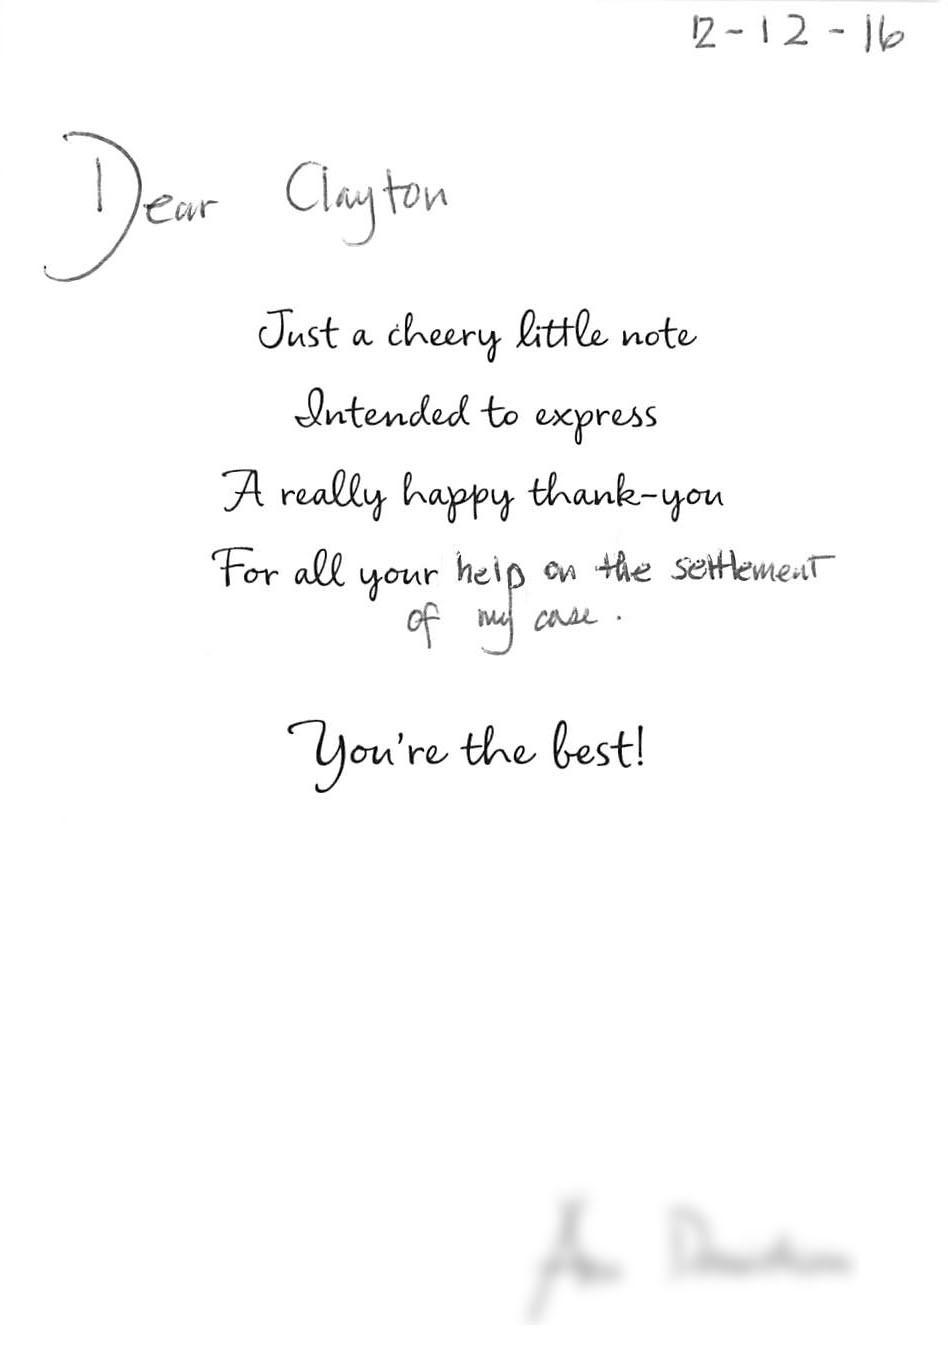 12-12-16
Dear Clayton
Just a cheery little note
Intended to express
A really happy thank-you
For all your help on the settlement
of my case.
You're the best!